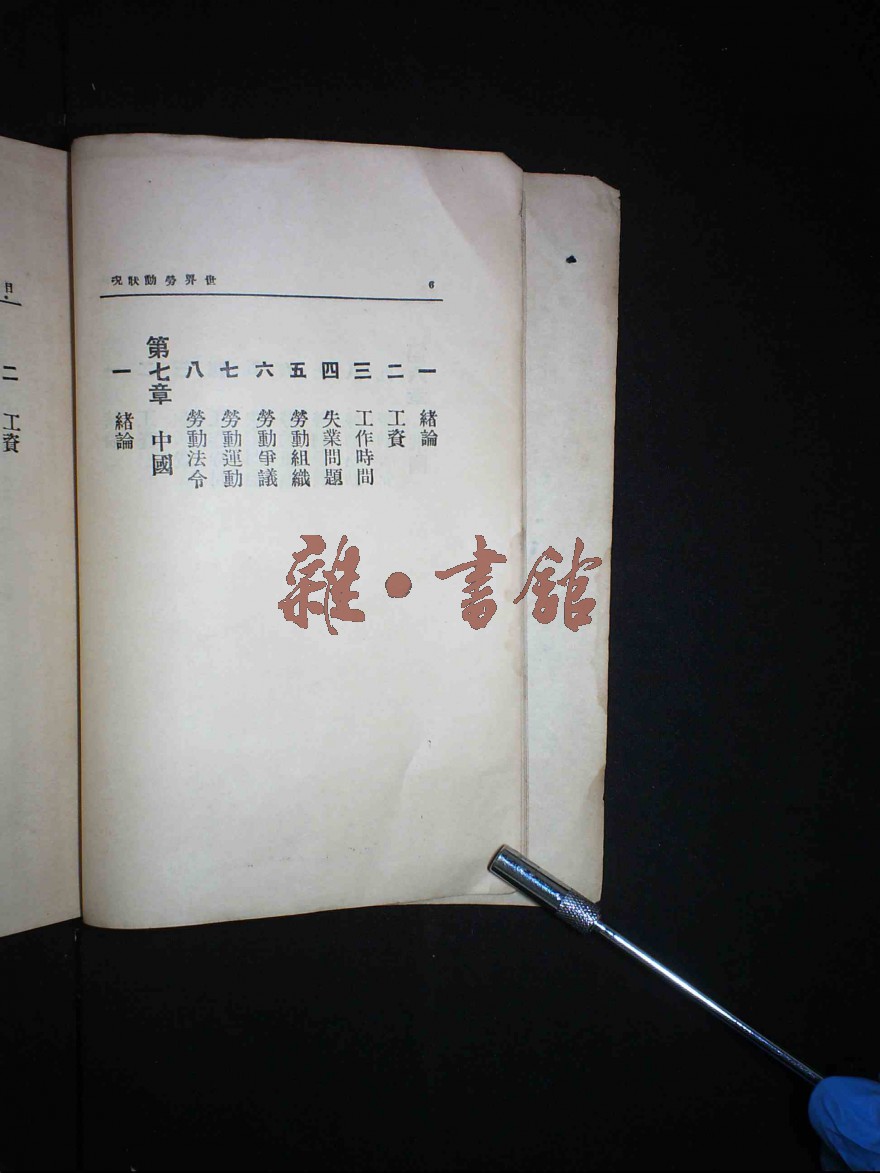 世界勞動狀況
6
一 緒論
二 工資
三 工作時間
四 失業問題
五 勞動組織
六 勞動爭議
七 勞動運動
八 勞動法令
第七章 中國
一 緒論
目
二 工資
雜·書館